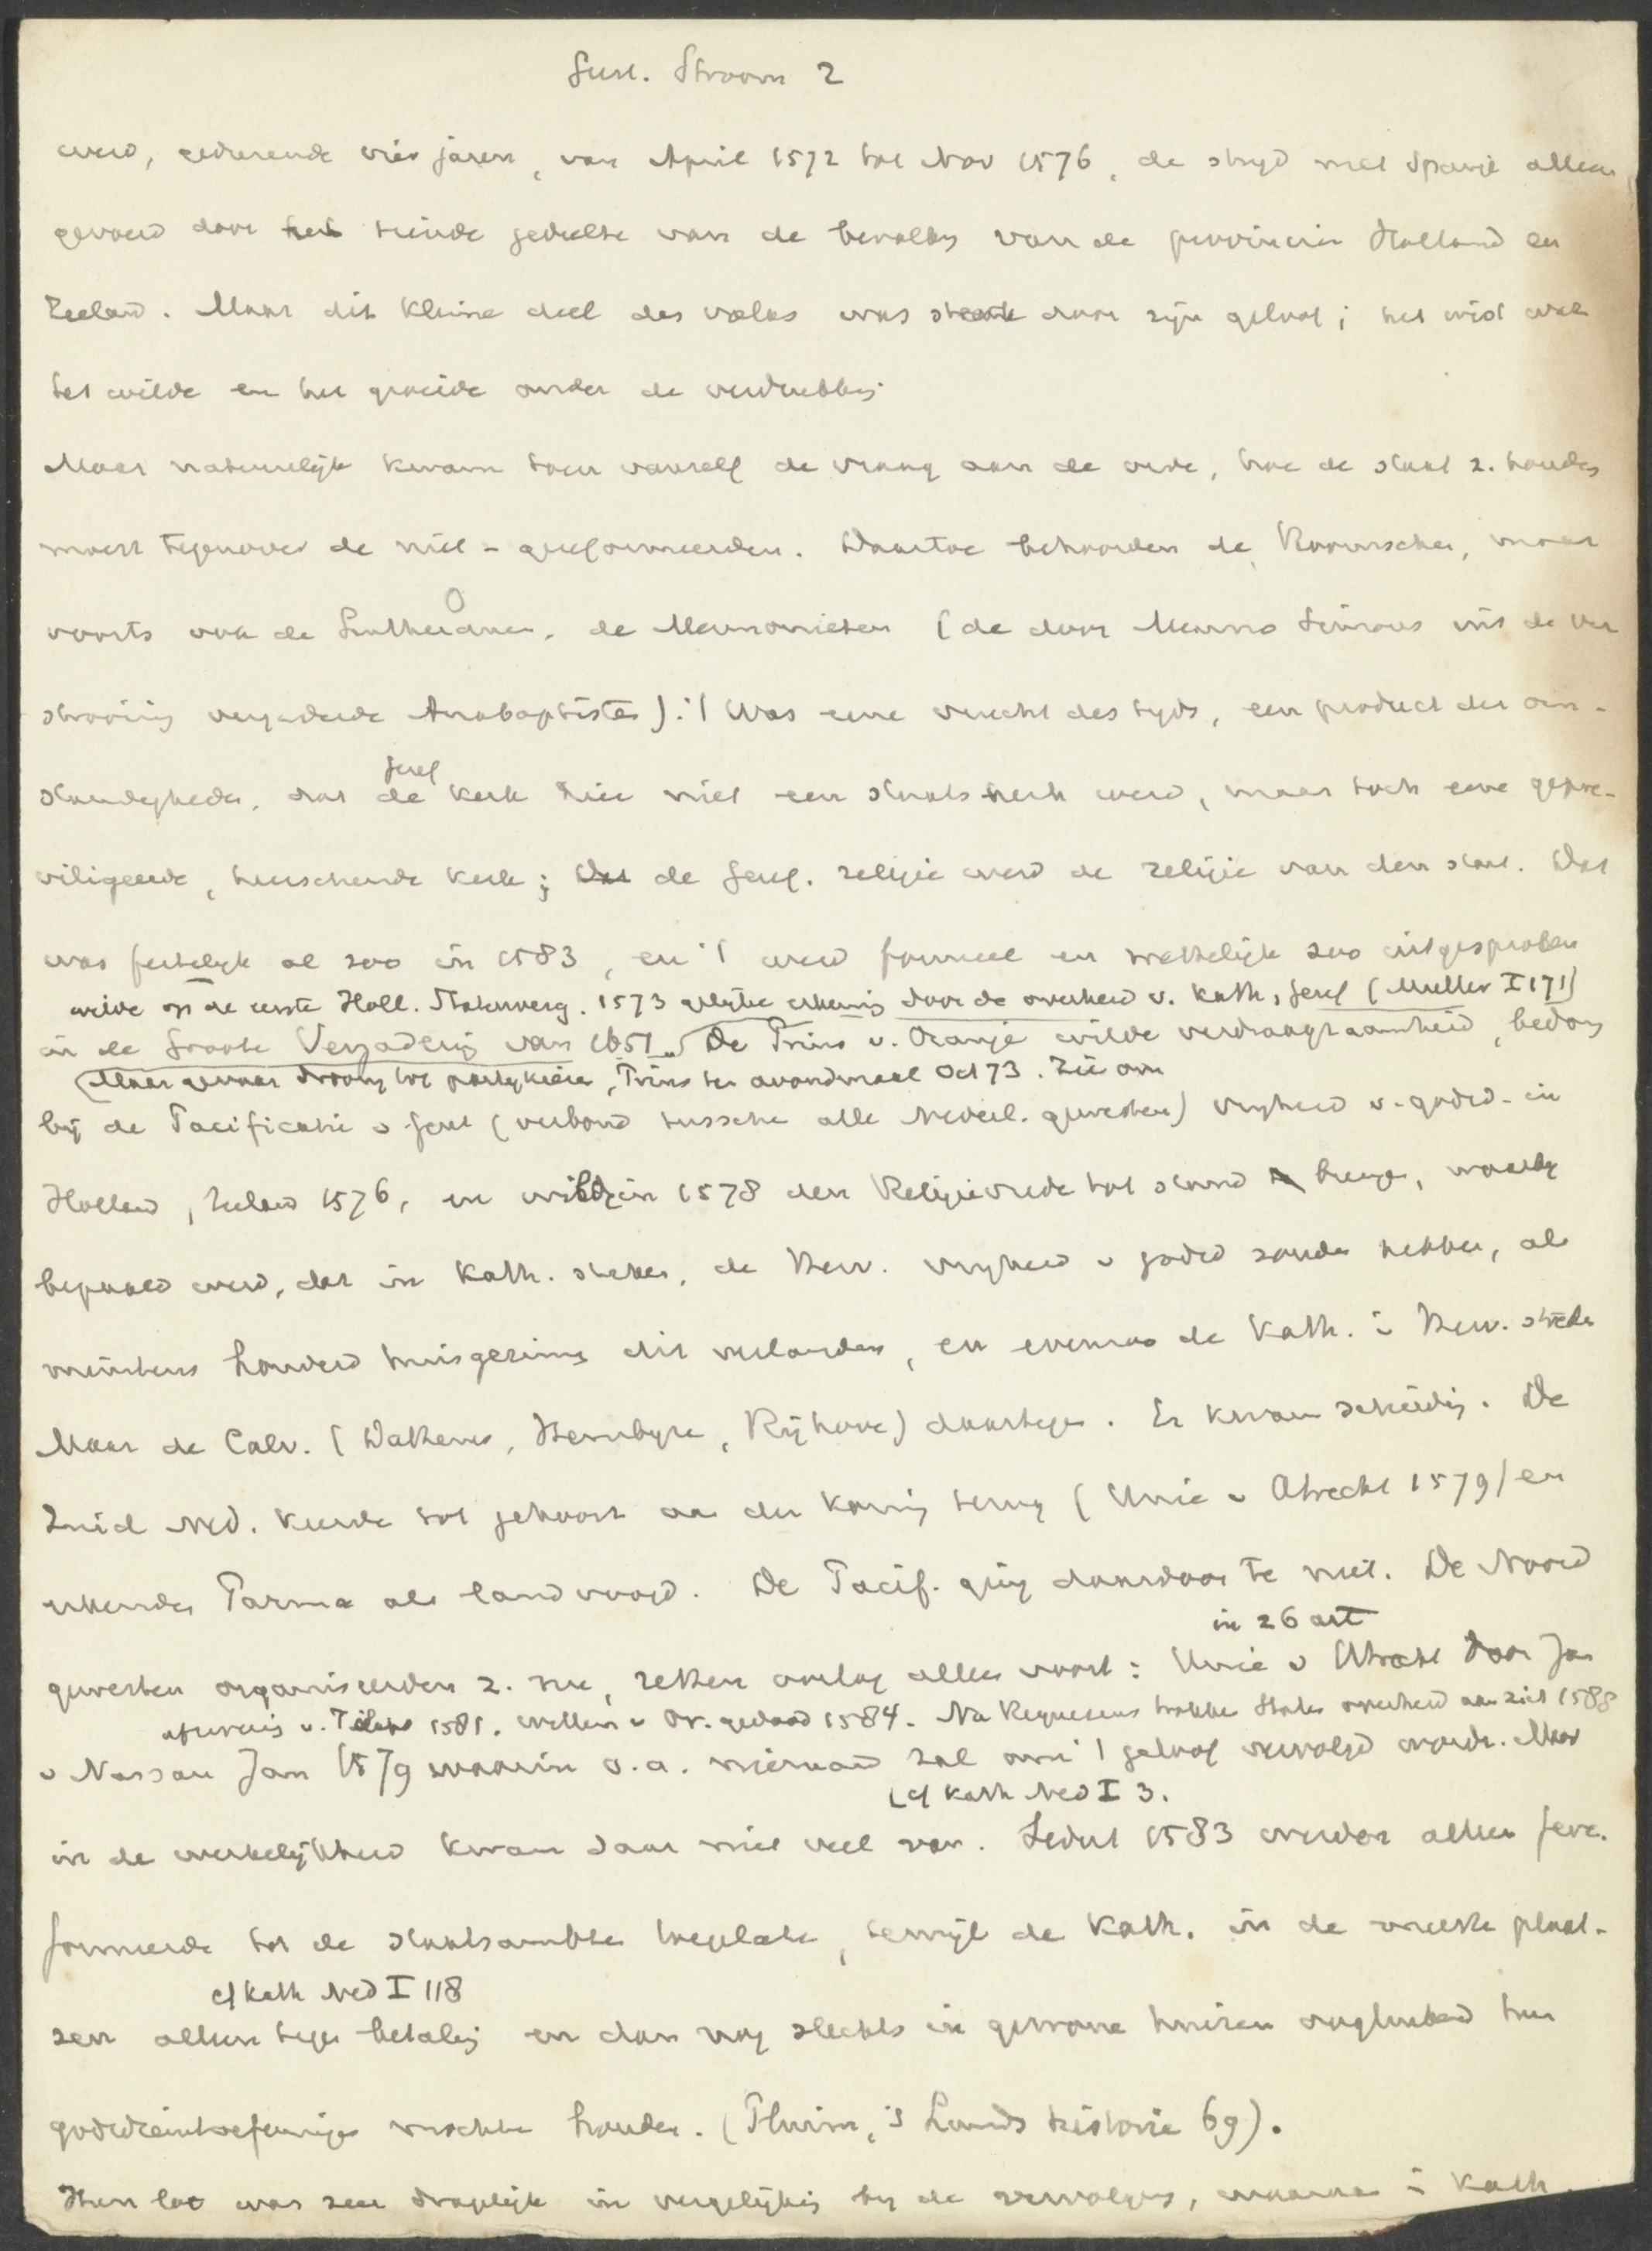 Geref. Stroom 2
werd, gedurende vier jaren, van April 1572 tot Nov 1576, de strijd met Spanje alleen
gevoerd door het tiende gedeelte van de bevolking van de provincien Holland en
Zeeland. Maar dit kleine deel des volks was sterk door zijn geloof; het wist wat
het wilde en het groeide onder de verdrukking.
Maar natuurlijk kwam toen vanzelf de vraag aan de orde, hoe de staat z. houden
moest tegenover de niet-gereformeerden. Daartoe behoorden de Roomschen, maar
voorts ook de Lutheranen, de Mennonieten (de door Menno Simons uit de ver
strooiing vergaderde Anabaptisten). 't Was eene vrucht des tijds, een product der om-
standigheden, dat de Geref kerk hier niet een staatskerk werd, maar toch eene gepre-
viligeerde, heerschende kerk; de Geref. religie werd de religie van den staat. Dat
was feitelijk al zoo in 1583, en 't werd formeel en wettelijk zoo uitgesproken
wilde op de eerste Holl. Statenverg. 1573 gelijke erkening door de overheid v. Kath, Geref (Muller I 171)
in de Groote Vergadering van 1651. De Prins v. Oranje wilde verdraagzaamheid, bedong
(Maar gevaar drong tot partijkiezen, Prins ten avondmaal Oct 73. Zie om
bij de Pacificatie v Gent (verbond tusschen alle Nederl. gewesten) vrijheid v. godsd. in
Holland, Zeeland 1576, en wilde in 1578 den Religievrede tot stand brengen, waarbij
bepaald werd, dat in Kath. steden, de Herv. vrijheid v godsd zouden hebben, als
minstens honderd huisgezinnen dit verlangden, en evenzoo de Kath. in Herv. steden
Maar de Calv. (Dathenus, Hembyze, Rijhove) daartegen. Er kwam scheiding. De
Zuid Ned. keerden tot gehoorz aan den koning terug (Unie v Atrecht 1579) en
erkenden Parma als landvoogd. De Pacif. ging daardoor te niet. De Noord
in 26 art
gewesten organiseerden z. nu, zetten oorlog alleen voort: Unie v Utrecht door Jan
afzwering v. Filips 1581. Willem v Or. gedood 1584. Na Requesens trokken Staten overheid aan zich 1588
v Nassau Jan 1579 waarin o.a. niemand zal om 't geloof vervolgd worden. Maar
cf Kath Ned I 3.
in de werkelijkheid kwam daar niet veel van. Sedert 1583 werden alleen Gere-
formeerden tot de staatsambten toegelaten, terwijl de Kath. in de meeste plaat-
cf Kath Ned I 118
sen alleen tegen betaling en dan nog slechts in gewone huizen oogluikend hun
godsdienstoefeningen mochten houden. (Pluim, 's Lands historie 69).
Hun lot was zeer dragelijk in vergelijking bij de vervolging, waaraan in Kath.